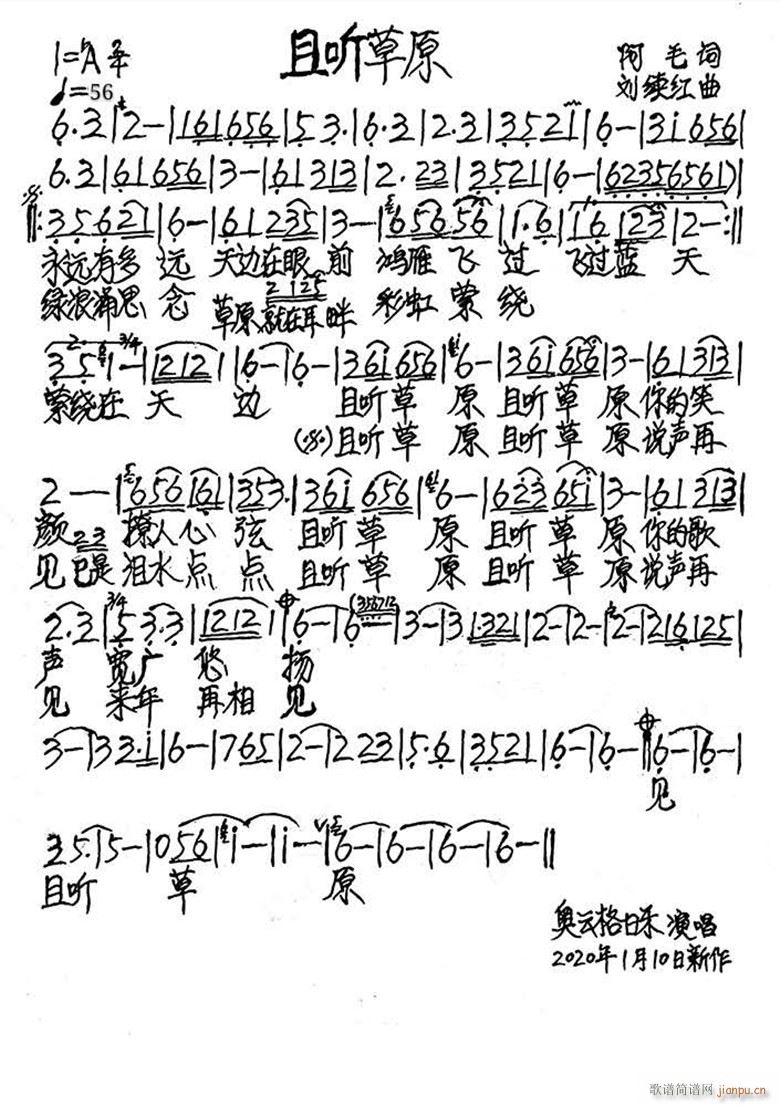 且听草原
1=♭A 2/4
阿毛词
♩=56
刘续红曲
6.3|2-|161656|53.|6.3|2.3|3521|6-|31656|
6.3|61656|3-|61313|2.23|3521|6-|62356561)|
35621|6-|61235|3-|65656|1.6|16123|2-:||
永远有多远 天边在眼前 鸿雁飞过 飞过蓝天
2 125
绿浪涌思念 草原就在耳畔 彩虹萦绕
3/4
351-|12121|6-|6-|361656|6-|361656|3-|61313|
萦绕在天边 且听草原且听草原你的笑
且听草原且听草原说声再
2--|656161|353.|361656|6-|623651|3-|61313|
颜 撩人心弦 且听草原且听草原你的歌
23
见已是泪水点点 且听草原且听草原说声再
3/4
2.3|53.3|12121|6-|6|3-|31321|2-|2-|2-|216125|
声 宽广悠扬
见 来年再相见
3-|33.1|6-|765|2-|223|5.6|3521|6-|6-||6-|6-|
见
35.|5-|056|1-|1-|6-|6-|6-|6-||
且听草原
演唱
2020年1月10日新作
歌谱简谱网
jianpu.cn